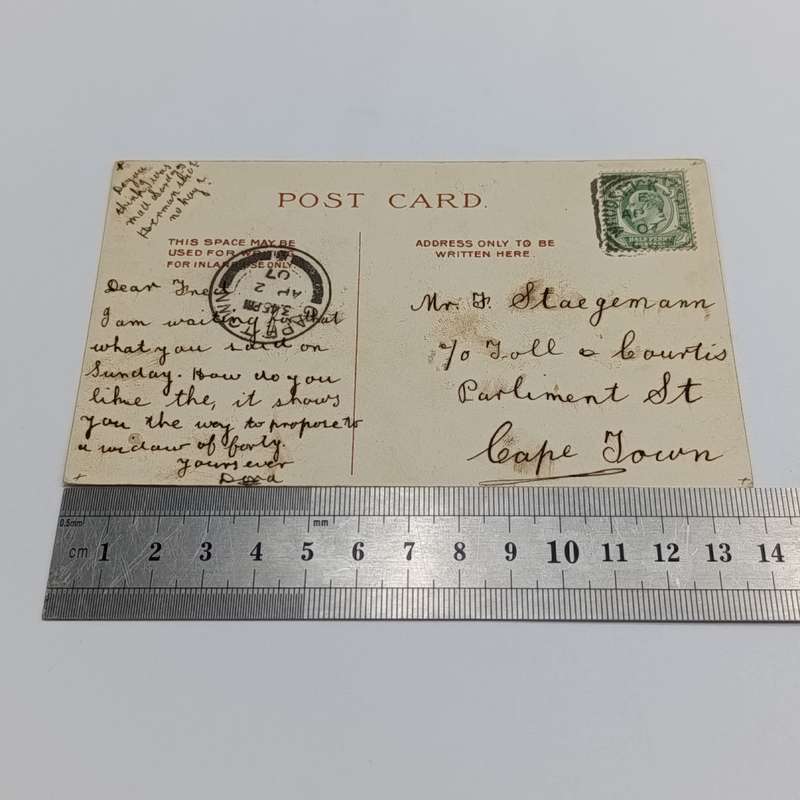 Do you
think
mad
Herman
no hay?
POST CARD.
THIS SPACE MAY BE
USED FOR
FOR INLAND USE ONLY
ADDRESS ONLY TO BE
WRITTEN HERE.
CAPE TOWN
3.45 PM
AP 2
07
Dear Fred
I am waiting for that
what you said on
Sunday. How do you
like the, it shows
you the way to propose to
a widow of forty.
Yours ever
Mr. F. Staegemann
c/o Toll & Courtis
Parliment St
Cape Town
0.5mm
mm
cm 1 2 3 4 5 6 7 8 9 10 11 12 13 14